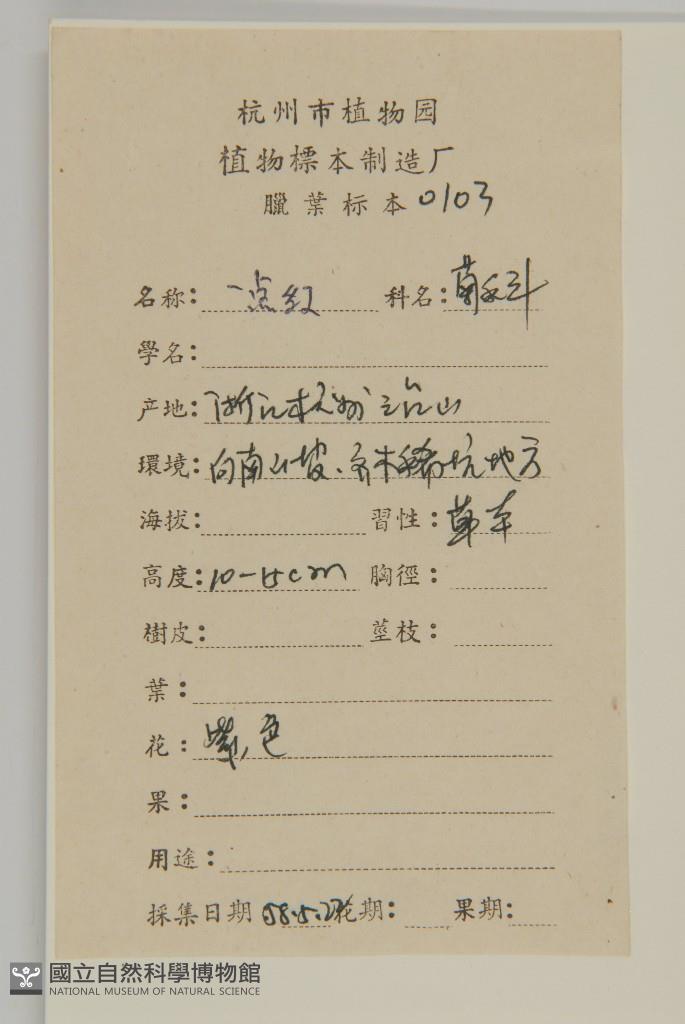 杭州市植物园
植物標本制造厂
臘葉标本 0103
名称: 一点红 科名: 菊科
學名:
产地: 浙江杭州
環境: 向南山坡、乔木稀 地方
海拔: 習性: 草本
高度: 10-15cm 胸徑:
樹皮: 莖枝:
葉:
花: 紫色
果:
用途:
採集日期 58.5.27 花期: 果期:
國立自然科學博物館
NATIONAL MUSEUM OF NATURAL SCIENCE